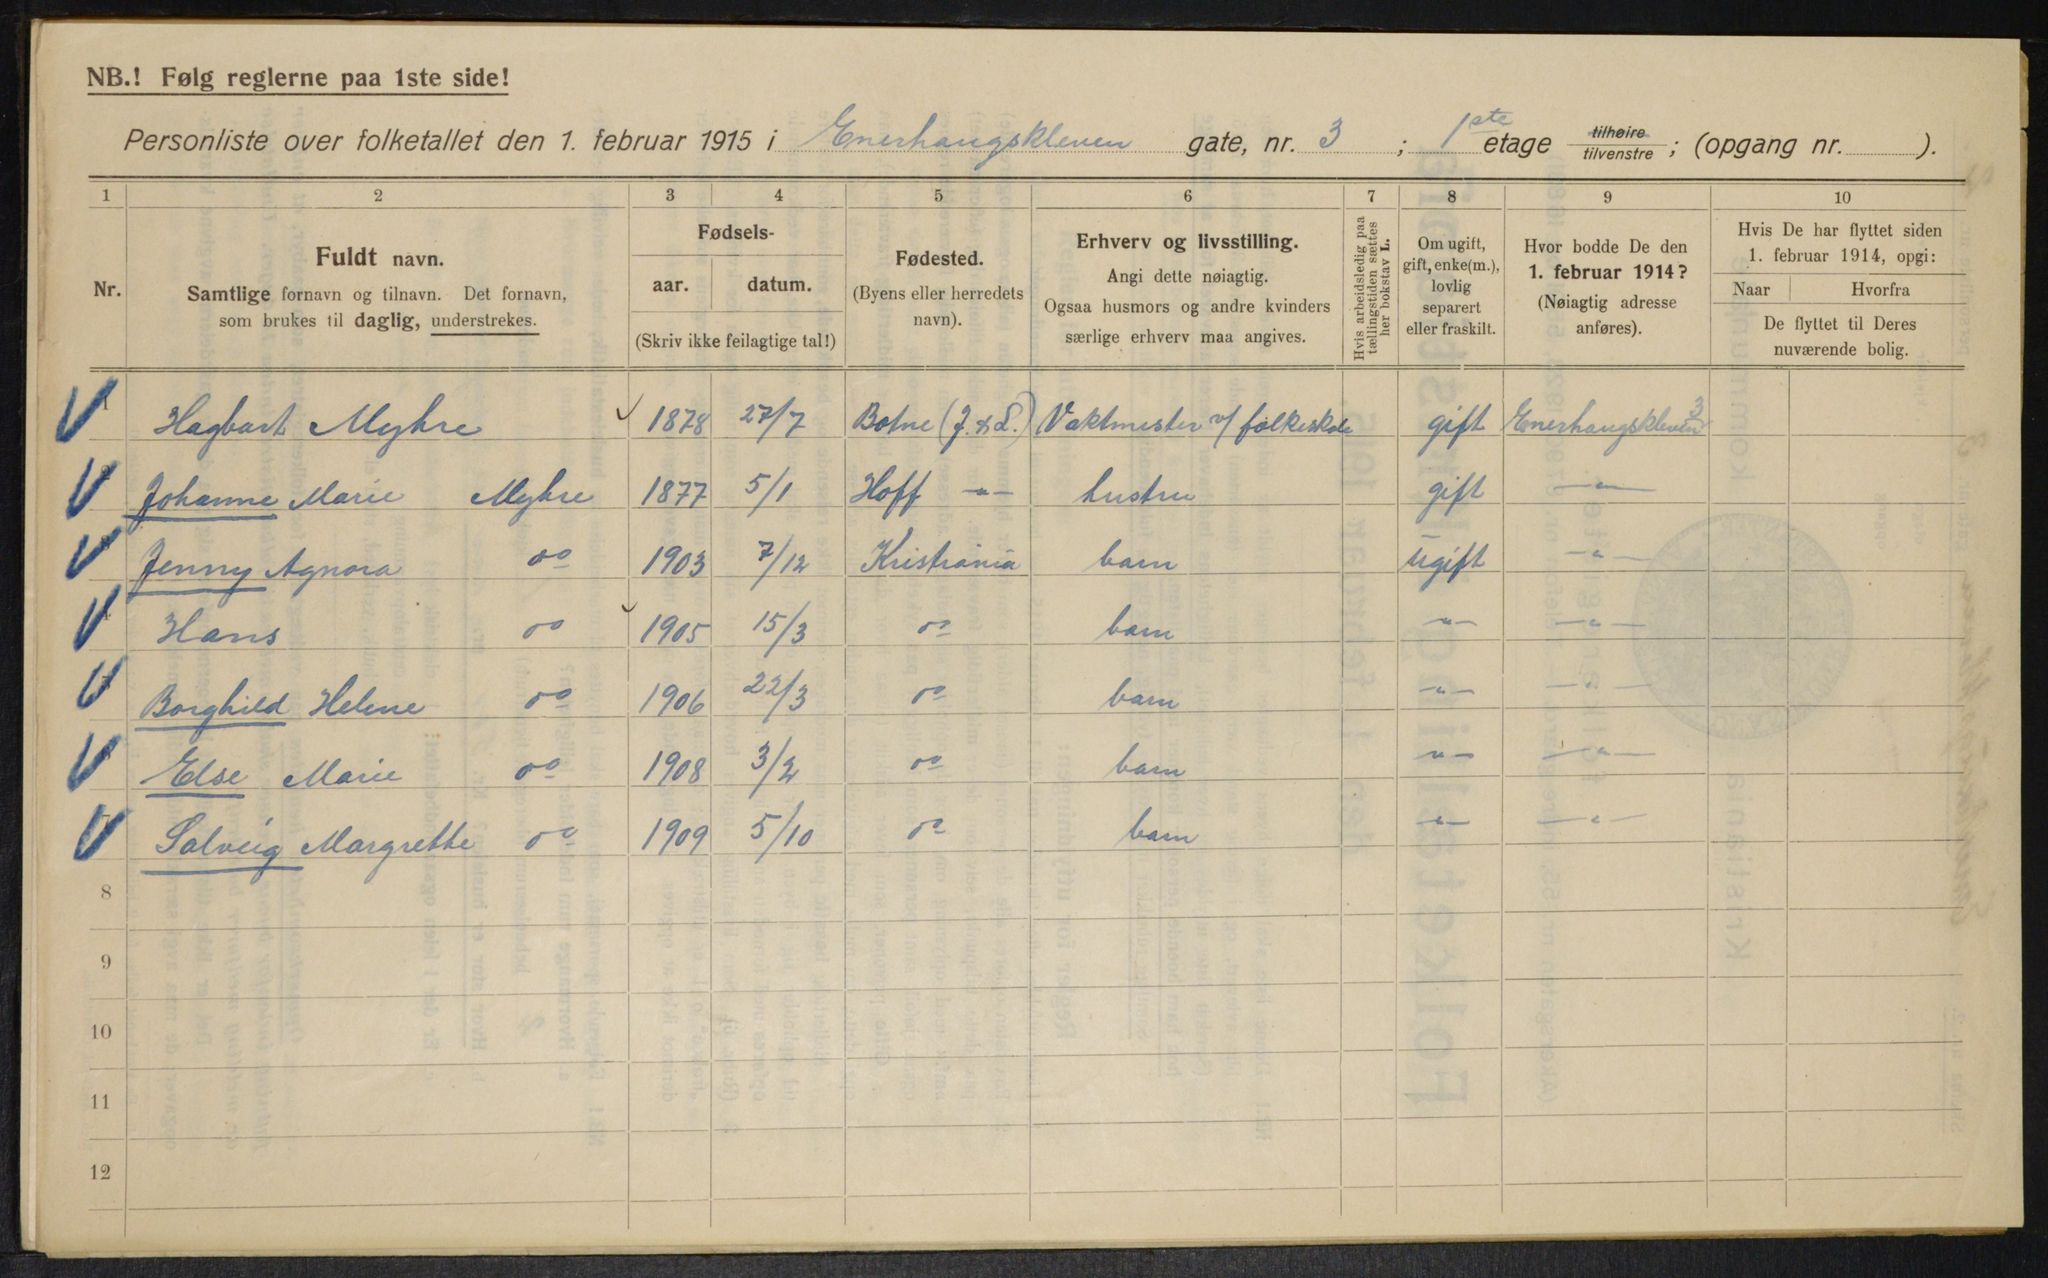 NB.! Følg reglerne paa 1ste side!
Personliste over folketallet den 1. februar 1915 i Enerhaugskleven gate, nr. 3 ; 1ste etage tilhøire / tilvenstre ; (opgang nr. ).
1 2 3 4 5 6 7 8 9 10
Nr.
Fuldt navn.
Samtlige fornavn og tilnavn. Det fornavn,
som brukes til daglig, understrekes.
Fødsels-
aar. datum.
(Skriv ikke feilagtige tal!)
Fødested.
(Byens eller herredets
navn).
Erhverv og livsstilling.
Angi dette nøiagtig.
Ogsaa husmors og andre kvinders
særlige erhverv maa angives.
Hvis arbeidsledig paa
tællingstiden sættes
her bokstav L.
Om ugift,
gift, enke(m.),
lovlig
separert
eller fraskilt.
Hvor bodde De den
1. februar 1914?
(Nøiagtig adresse
anføres).
Hvis De har flyttet siden
1. februar 1914, opgi:
Naar Hvorfra
De flyttet til Deres
nuværende bolig.
1 Hagbart Myhre 1878 27/7 Botne (J. & L.) Vaktmester v/ folkeskole gift Enerhaugskleven 3
2 Johanne Marie Myhre 1877 5/1 Hoff —"— hustru gift —"—
3 Jenny Agnora do 1903 7/12 Kristiania barn ugift —"—
4 Hans do 1905 15/3 do barn —"— —"—
5 Borghild Helene do 1906 22/3 do barn —"— —"—
6 Else Marie do 1908 3/2 do barn —"— —"—
7 Solveig Margrethe do 1909 5/10 do barn —"— —"—
8
9
10
11
12